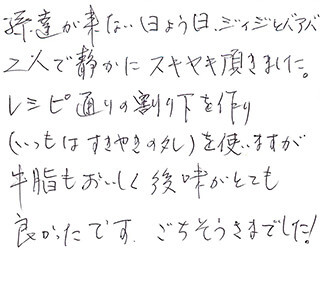 孫達が来ない日よう日、ジィジとバアバ
2人で静かにスキヤキ頂きました。
レシピ通りの割り下を作り
(いつもはすきやきのタレ)を使いますが
牛脂もおいしく後味がとても
良かったです。ごちそうさまでした!